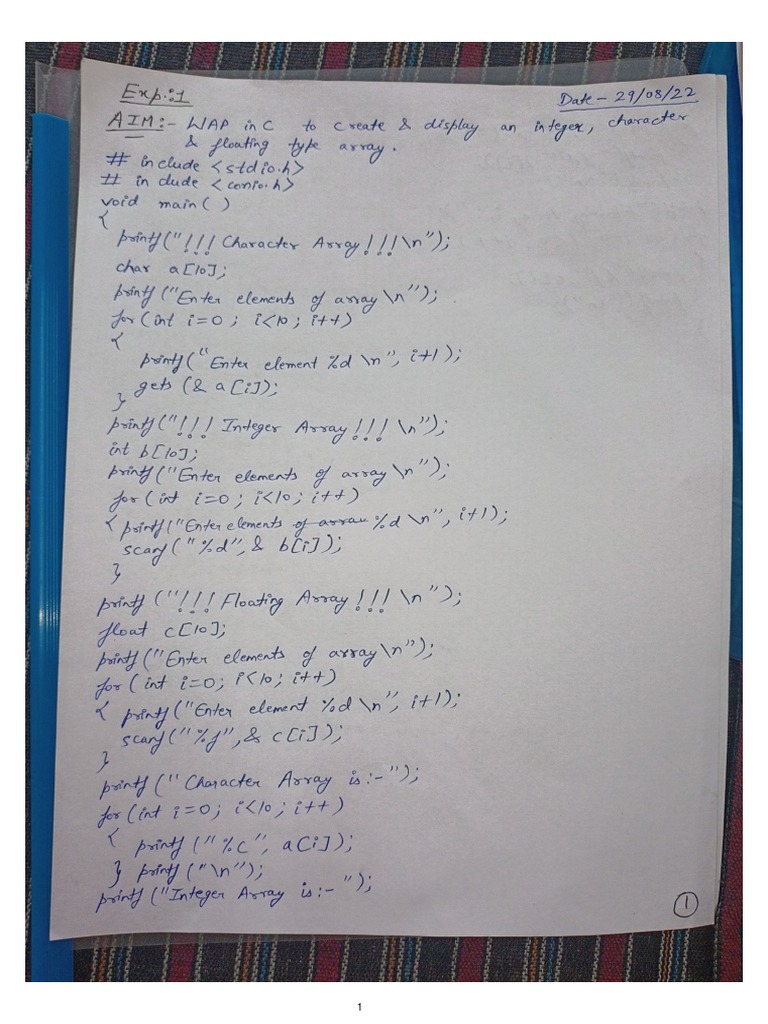 Exp.:1
Date - 29/08/22
AIM:- WAP in C to create & display an integer, character
& floating type array.
# include <stdio.h>
# include <conio.h>
void main( )
{
printf("!!! Character Array!!!\n");
char a[10];
printf("Enter elements of array\n");
for(int i=0; i<10; i++)
{
printf("Enter element %d \n", i+1);
gets (& a[i]);
}
printf("!!! Integer Array!!! \n");
int b[10];
printf("Enter elements of array\n");
for(int i=0; i<10; i++)
{ printf("Enter elements of array %d \n", i+1);
scanf("%d",& b[i]);
}
printf("!!! Floating Array!!! \n");
float c[10];
printf("Enter elements of array\n");
for(int i=0; i<10; i++)
{ printf("Enter element %d \n", i+1);
scanf("%f",& c[i]);
}
printf("Character Array is:-");
for(int i=0; i<10; i++)
{ printf("%c", a[i]);
} printf("\n");
printf("Integer Array is:- ");
1
1